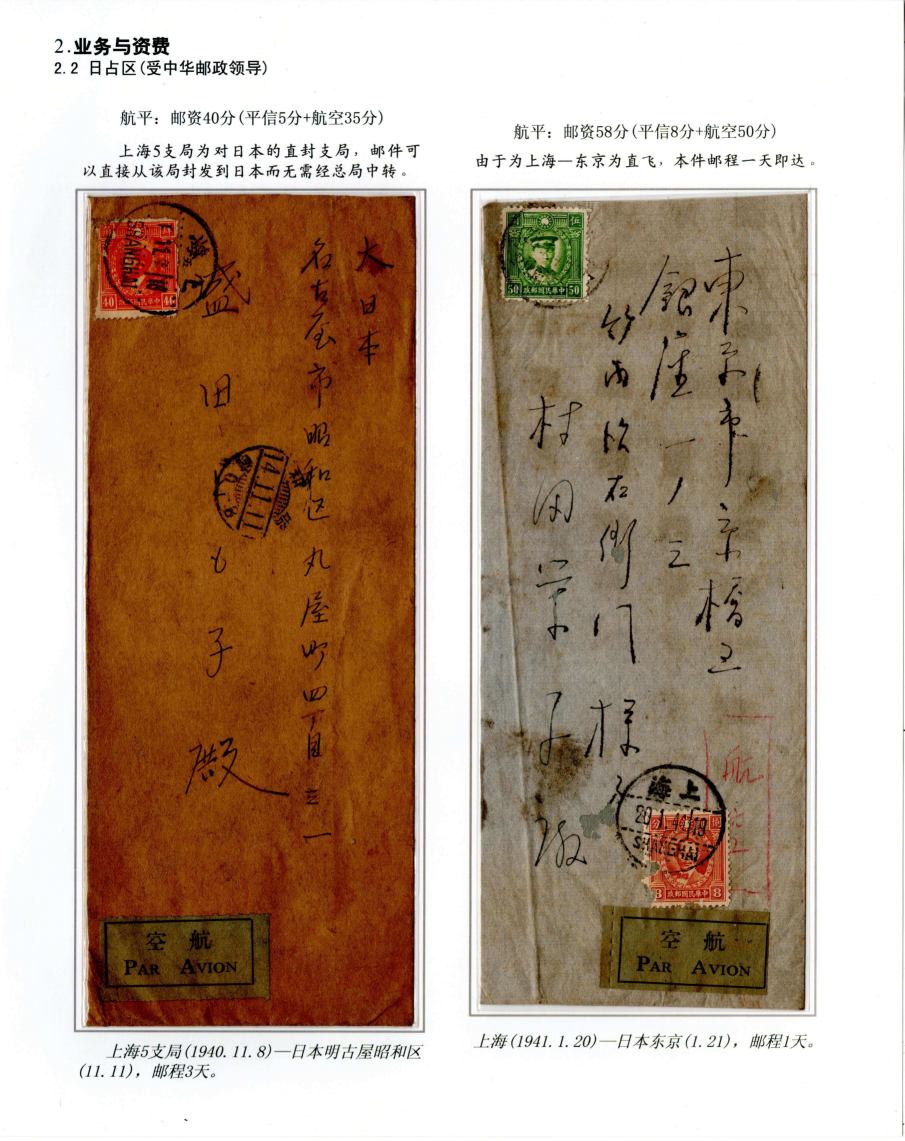 2.业务与资费
2.2 日占区(受中华邮政领导)
航平：邮资40分(平信5分+航空35分)
上海5支局为对日本的直封支局，邮件可
以直接从该局封发到日本而无需经总局中转。
大日本
名古屋市昭和区丸屋町四丁目三一
盛田もも子殿
SHANGHAI
40
14.11.11
空 航
PAR AVION
上海5支局(1940.11.8)—日本明古屋昭和区
(11.11)，邮程3天。
航平：邮资58分(平信8分+航空50分)
由于为上海—东京为直飞，本件邮程一天即达。
50 政郵國民華中 50
東京市京橋区
銀座一ノ三
様
村田
航
海上
20.1.41
SHANGHAI
8 政郵國民華中 8
空 航
PAR AVION
上海(1941.1.20)—日本东京(1.21)，邮程1天。